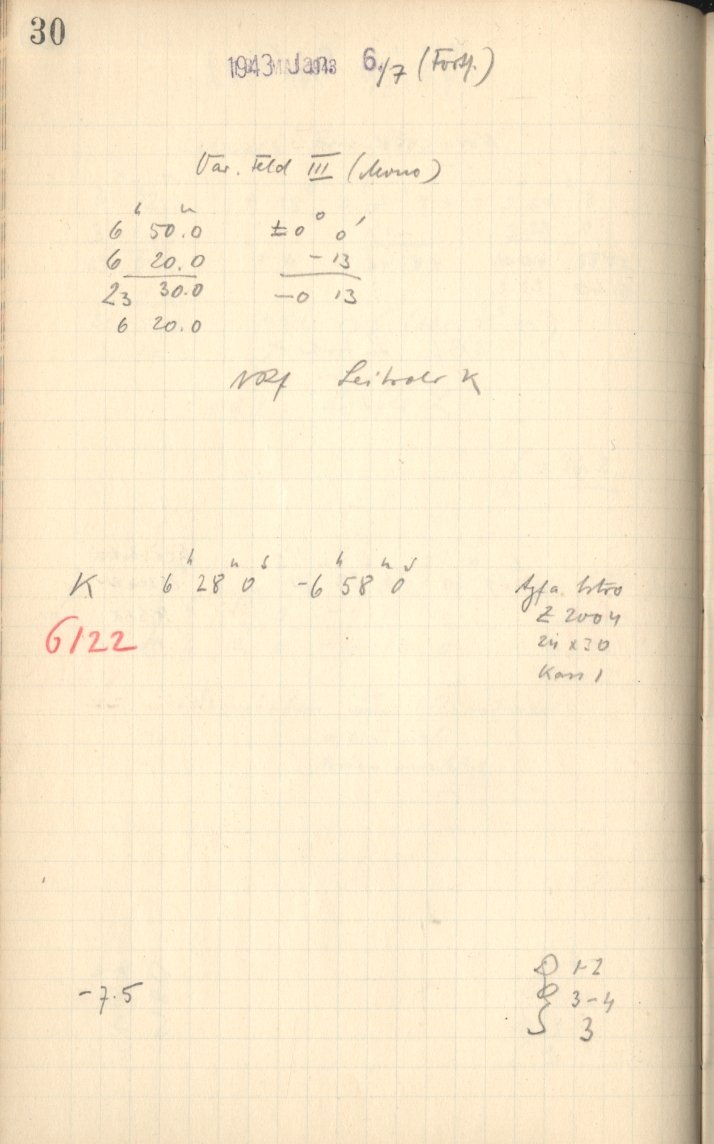 30
1943 Jan. 6./7 (Forts.)
Var. Feld III (Mono)
6ʰ 50.0ᵐ ±0° 0′
6 20.0 -13
23 30.0 -0 13
6 20.0
Leitrohr K
K 6ʰ 28ᵐ 0ˢ -6ʰ 58ᵐ 0ˢ Agfa Astro
6122 Z 2004
24 x 30
Kass 1
-7.5 1-2
3-4
S 3